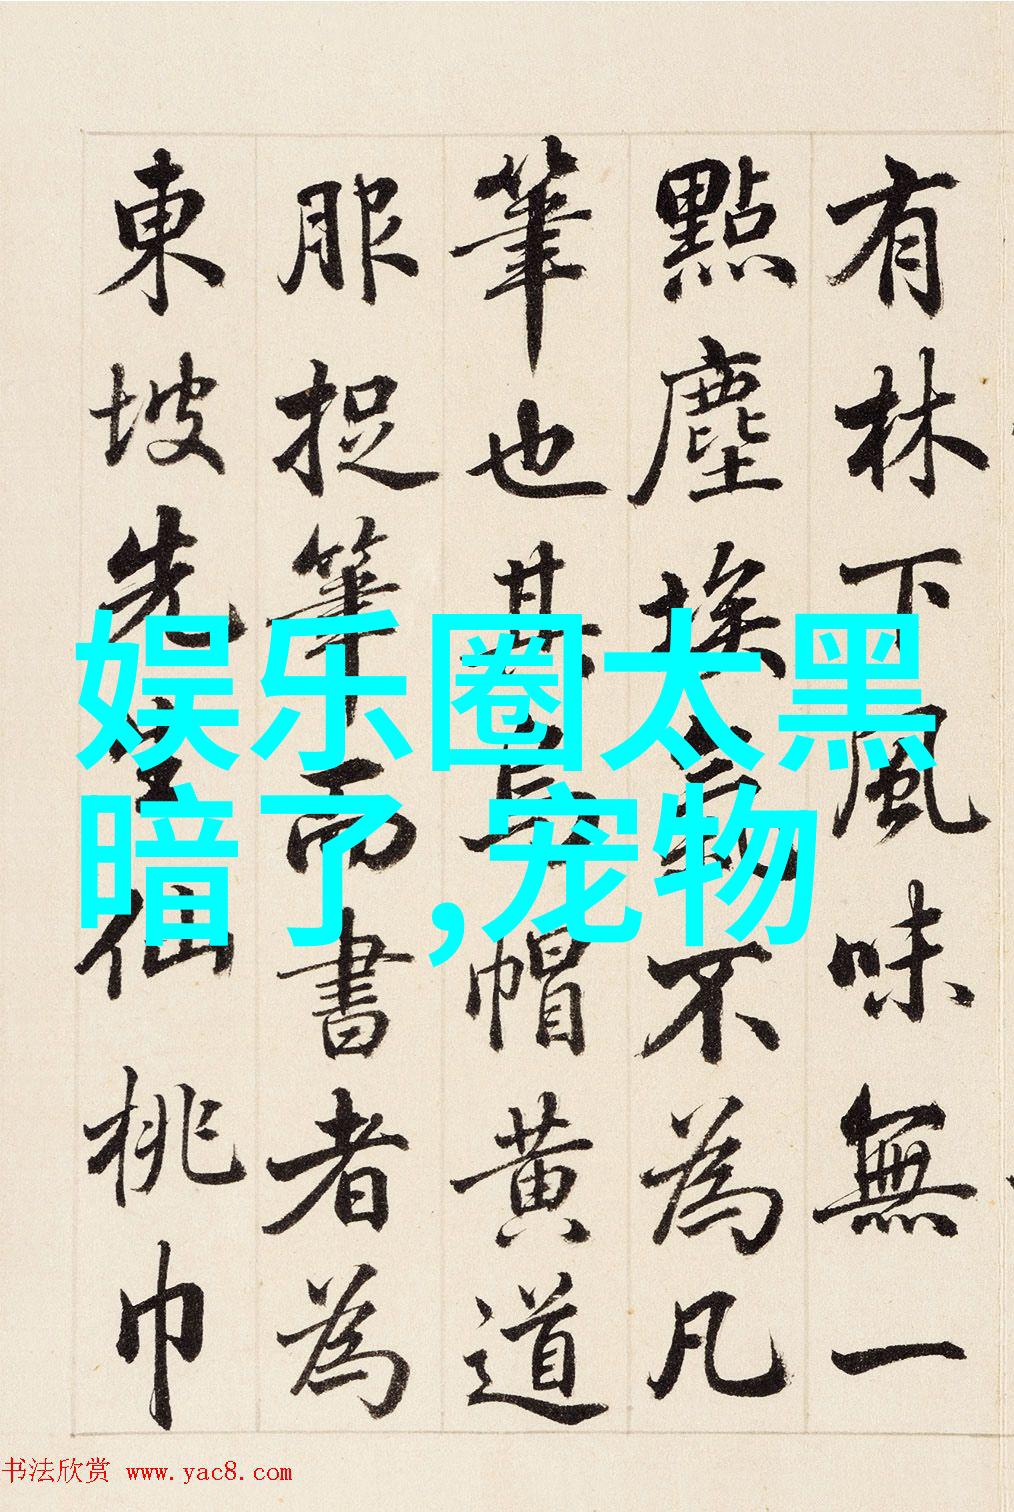 有林下風味無一
點塵埃不為凡
筆也其帽黃道
服捉筆而書者為
東坡先生仙桃巾
娱乐圈太黑
暗了,宠物
书法欣赏 www.yac8.com